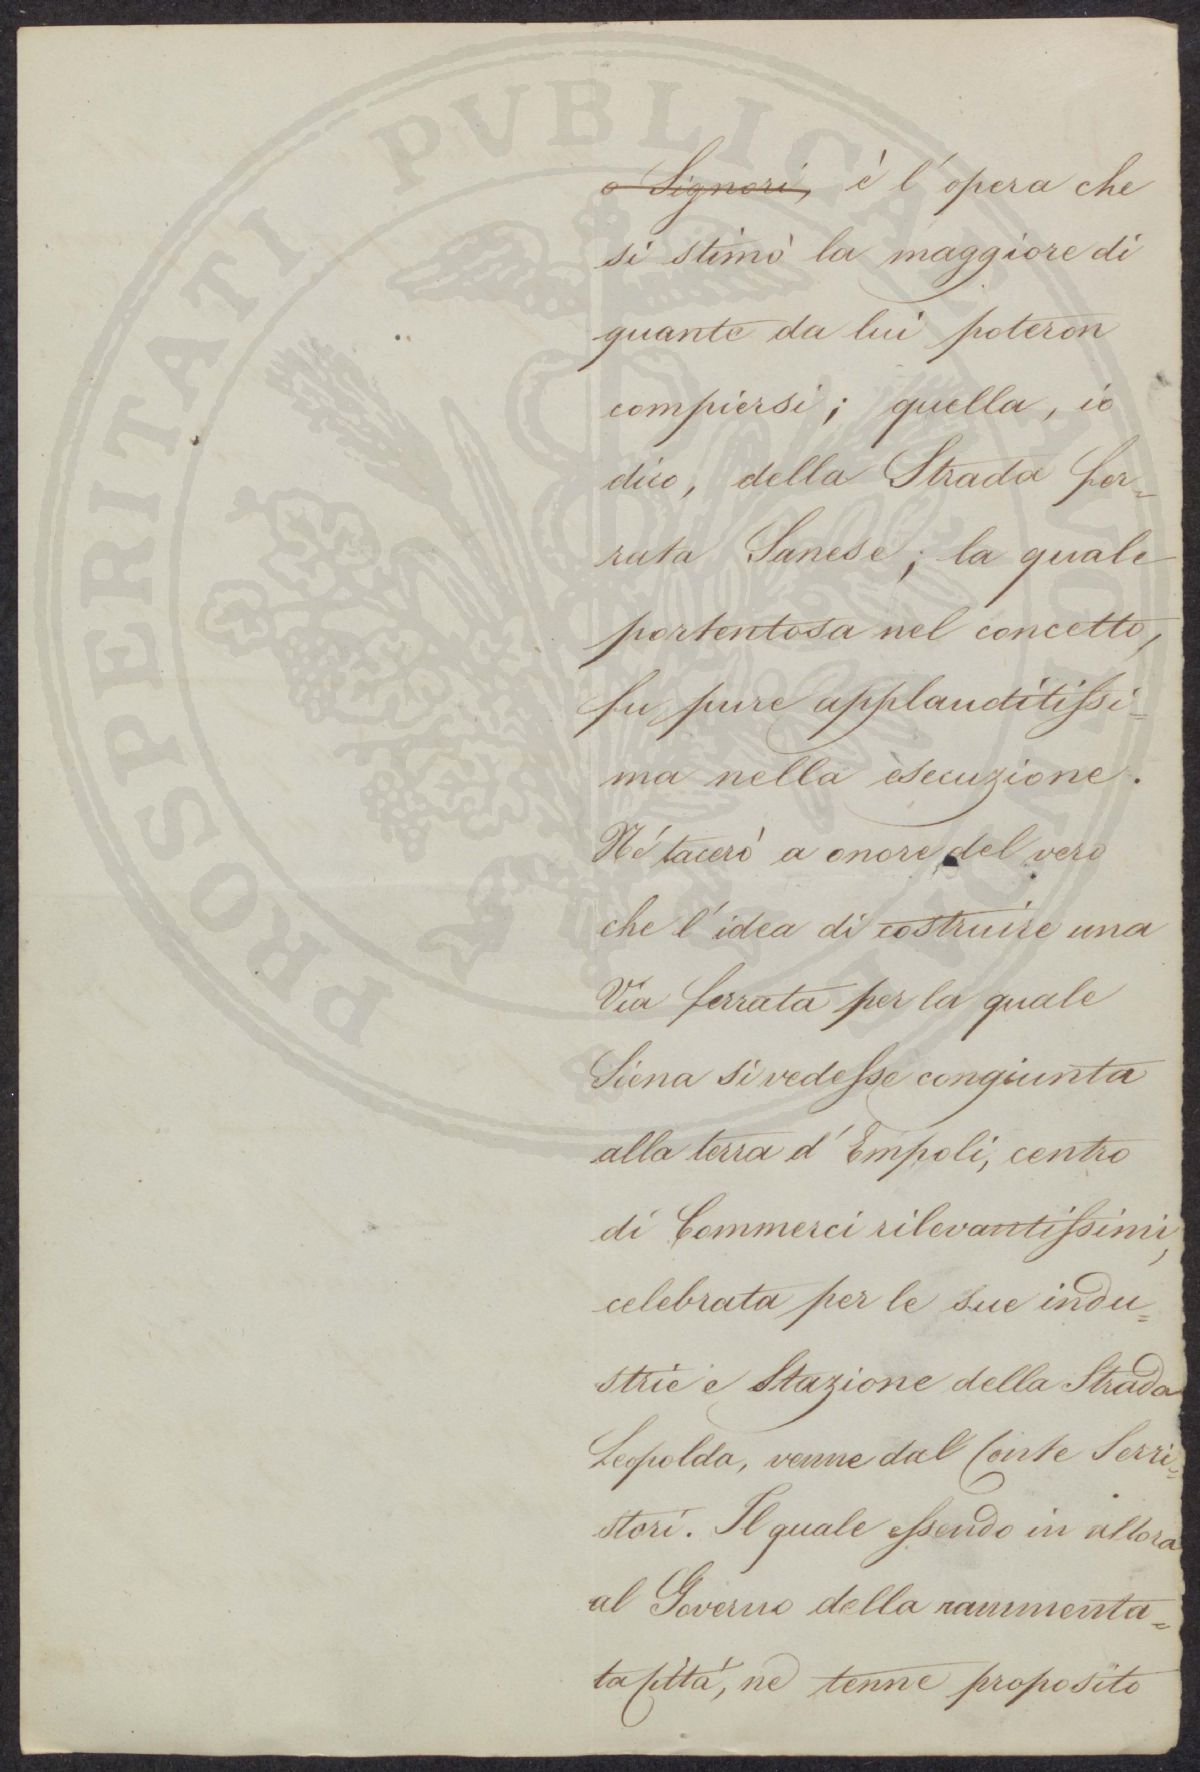 o Signori, è l'opera che
si stimò la maggiore di
quante da lui poteron
compiersi; quella, io
dico, della Strada fer=
rata Sanese; la quale
portentosa nel concetto,
fu pure applauditissi=
ma nella esecuzione.
Nè tacerò a onore del vero
che l'idea di costruire una
Via ferrata per la quale
Siena si vedesse congiunta
alla terra d'Empoli, centro
di Commerci rilevantissimi,
celebrata per le sue indu=
strie e Stazione della Strada
Leopolda, venne dal Conte Serri=
stori. Il quale essendo in allora
al Governo della rammenta=
ta Città, ne tenne proposito
PROSPERITATI PVBLICAE